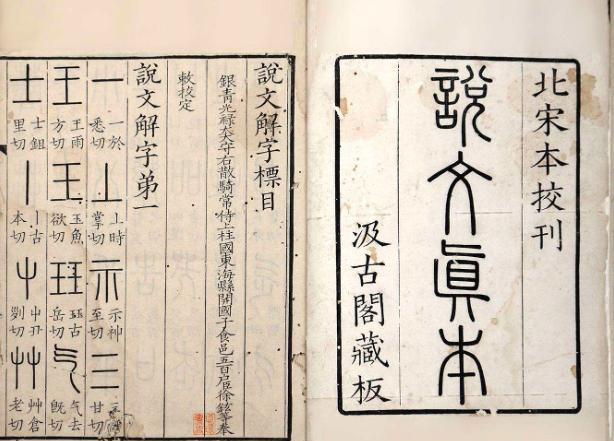 北宋本挍刊
說文眞本
汲古閣藏板
說文解字標目
銀青光祿大夫守右散騎常侍上柱國東海縣開國子食邑五百戶臣徐鉉等奉
敕挍定
說文解字第一
一 一於悉切 丄 丄時掌切 示 示神至切 三 三甘切
王 王雨方切 玉 玉魚欲切 玨 玨古岳切 气 气去旣切
士 士鉏里切 丨 丨古本切 屮 屮丑切 艸 艸倉老切